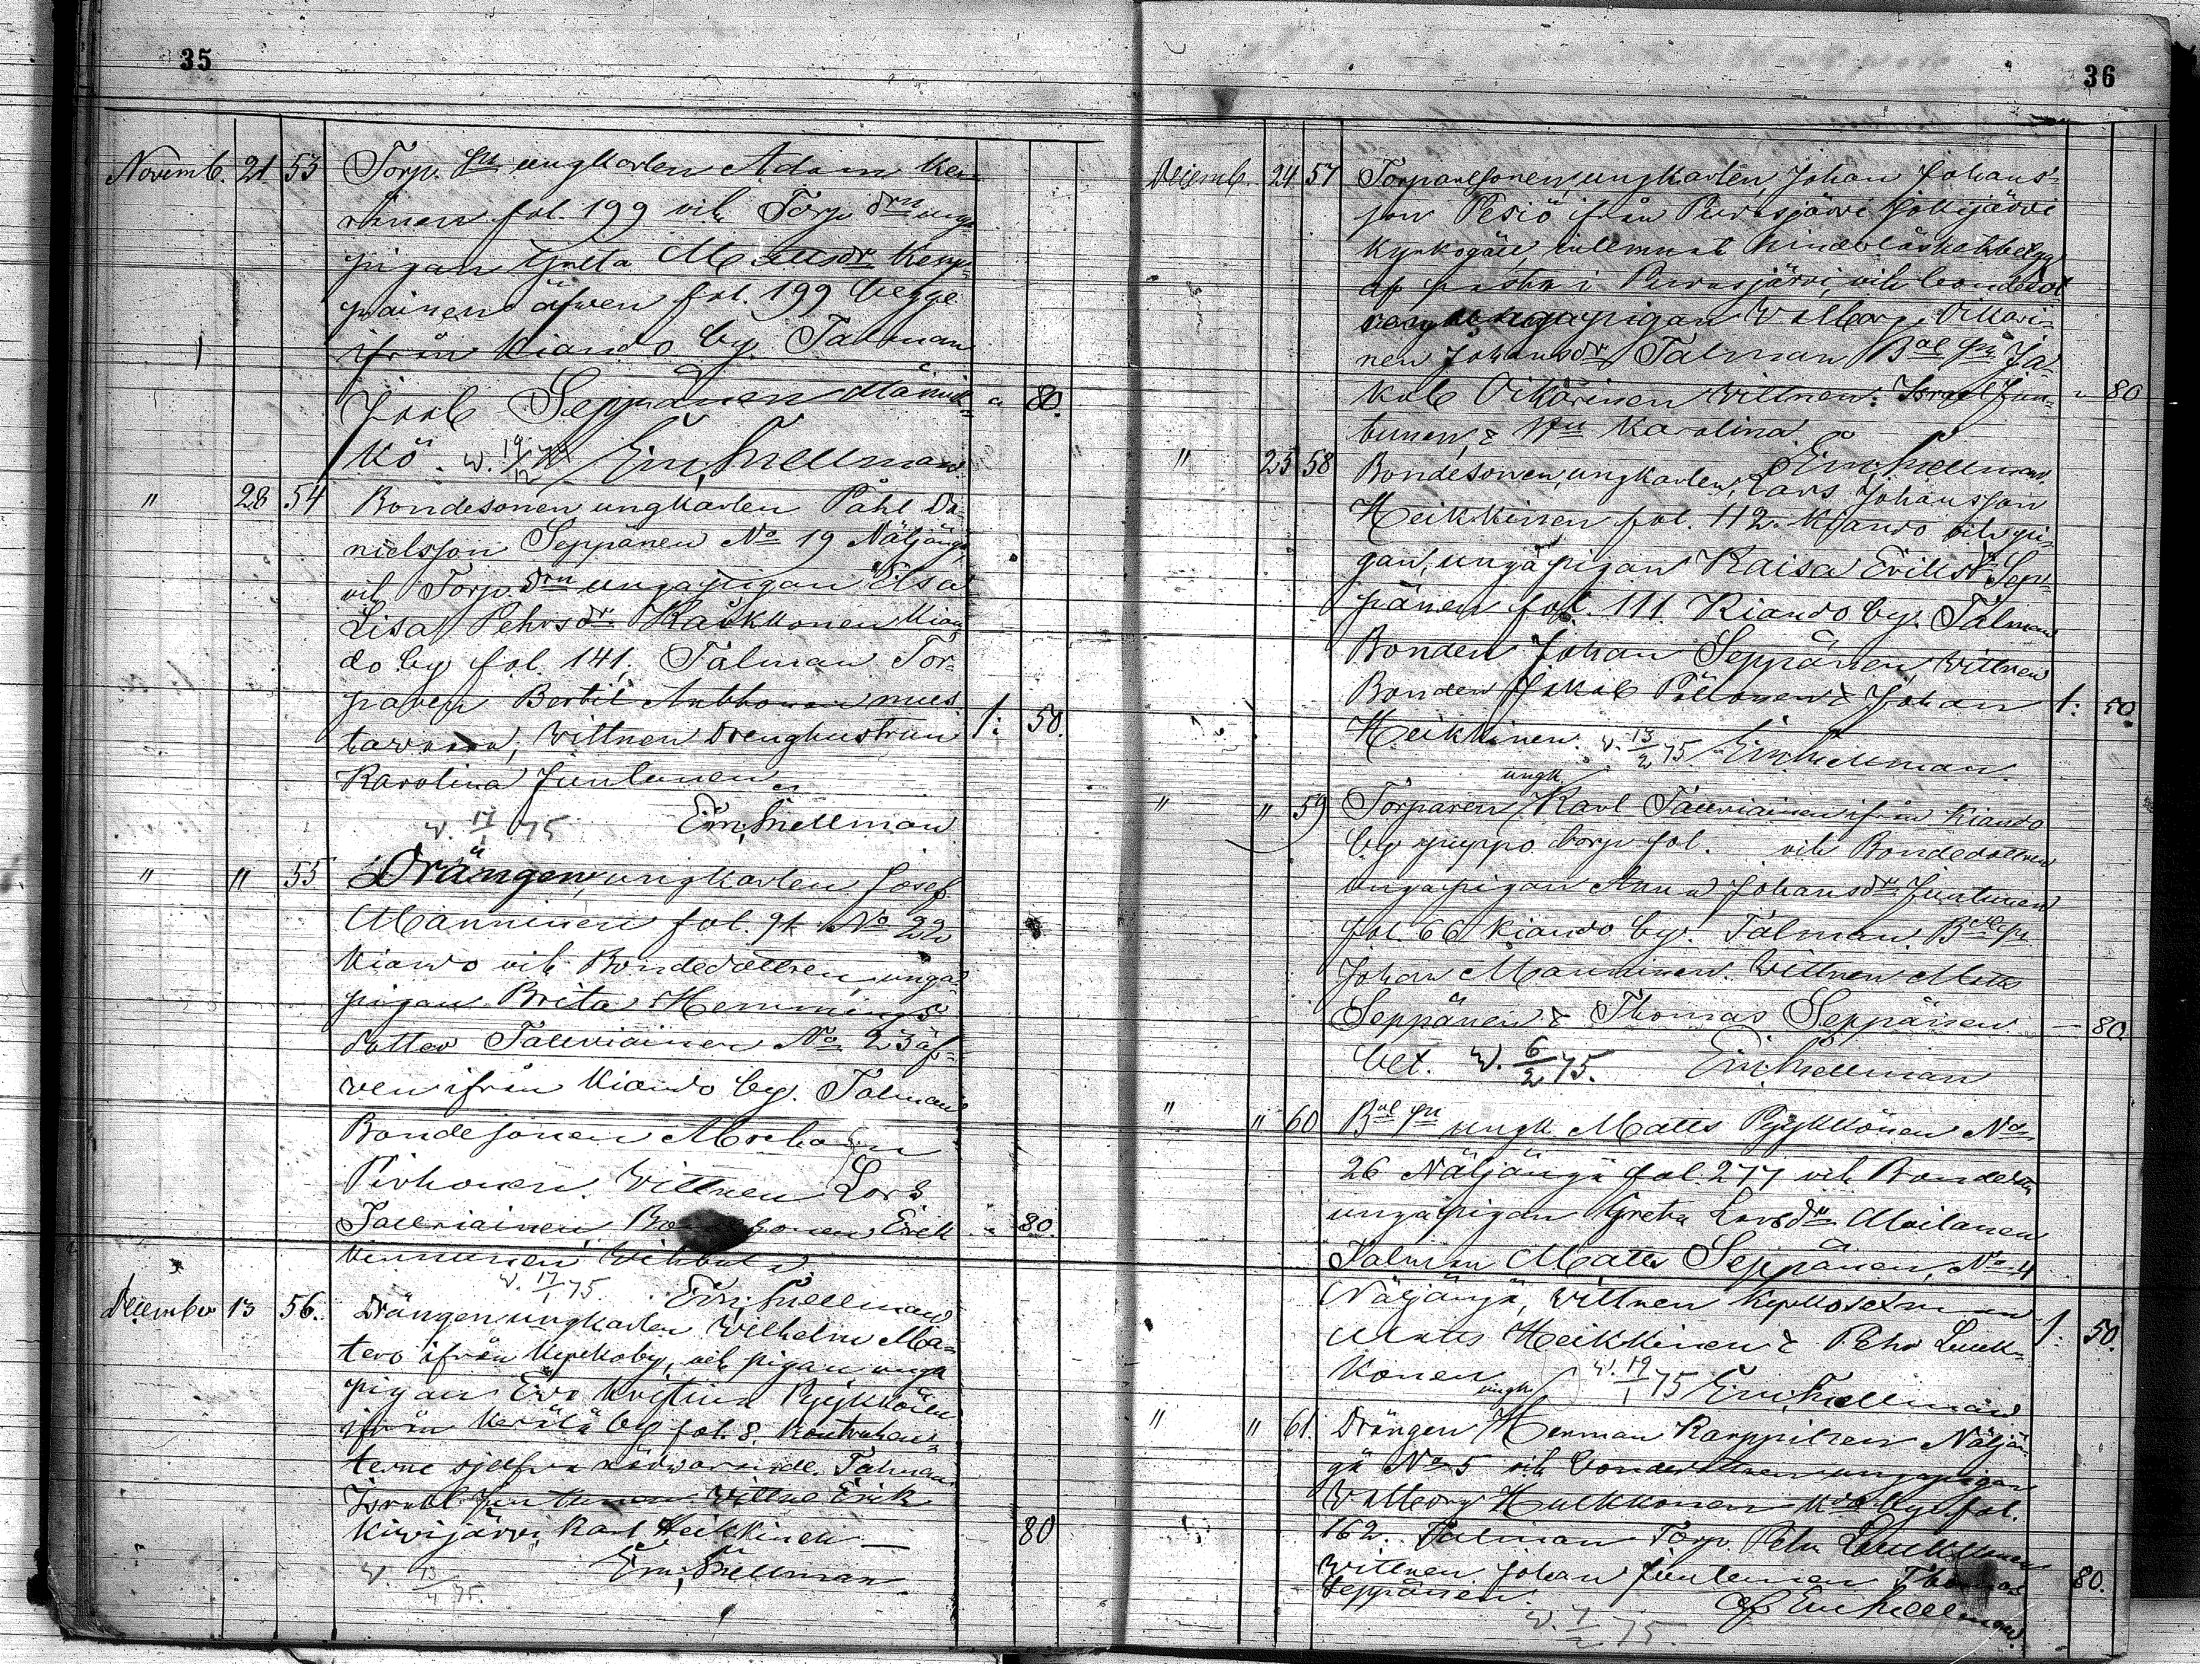 35
Novemb. 21 53 Torp. sn ungkarlen Adam
fol. 199 och Torp drn unga
pigan Greta Mattsdr Kemp-
painen äfven fol. 199 begge
ifrån Kiando by. Talman
Joel Seppänen Mannik- " 80.
kö. v. 19/12 74 Em. Snellman
" 28 54 Bondesonen ungkarlen Påhl Da-
nielsson Seppänen No 19 Näljängä,
och Torp. drn ungapigan Elsa
Lisa Pehrsdr Räkkonen Kian-
do by fol. 141, Talman Tor-
paren Bertil Anttonen mus-
tavaara, Vittnen Drenghustrun 1: 50.
Karolina Juntunen
v. 17/1 75 Em. Snellman
" " 55 Drängen, ungkarlen Josef
Manninen fol. 94 No 22
Kiando och Bondedottren, unga
pigan Brita Hemmings
dotter Tauriainen No 23 äf-
ven ifrån Kiando by. Talman
Bondesonen Abraham
Pirhonen. Vittnen Lars
Tauriainen, Erik " 80.
Kinnunen
v. 17/1 75 Em. Snellman
December 13 56. Drängen ungkarlen Wilhelm Mä-
tero ifrån Kyrkoby, och pigan, unga
pigan Eva Kristina Pyykkönen
ifrån Kerälä by fol. 8. Kontrahen-
terne sjelfva närvarande. Talman
Israel Juntunen Vittne Erik
Kivijärvi Karl Heikkinen 80
v. 13/ 75. Em. Snellman
36
Decemb. 24 57 Torparesonen, ungkarlen, Johan Johans-
son Pesiö ifrån Purasjärvi
kyrkogäll, intemnat hinderlöshetsbetyg
af pastor i Purasjärvi, och bondedot
ungapigan Valborg Oikari-
nen Johansdr Talman Bde sn Ja-
kob Oikärinen Vittnen: Israel Jun- " 80
tunen & Hu Karolina.
Em Snellman.
" 25 58 Bondesonen, ungkarlen, Lars Johansson
Heikkinen fol. 112. Kiando och pi-
gan, ungapigan Kaisa Eriksdr Sep-
pänen fol. 111. Kiando by. Talman
Bonden Johan Seppänen, Vittnen
Bonden Jakob Pällönen & Johan 1: 50.
Heikkinen. v. 13/2 75 Em. Snellman.
" " 59 Torparen ungk. Karl Tauriainen ifrån Kiando
by puppo torp fol. och Bondedottren
ungapigan Anna Johansdr Juntunen
fol. 66 Kiando by. Talman. Bde sn
Johan Manninen. Vittnen Matts
Seppänen & Thomas Seppänen — 80.
v. 6/2 75. Em. Snellman
" " 60 Bde sn ungk. Matts Pyykkönen No
26 Näljängä fol. 277 och Bondedtn
ungapigan Greta Larsdr Moilanen
Talman Matts Seppänen, No 4
Näljängä, Vittnen Kyrkosexman
Matts Heikkinen & Pehr Luuk- 1: 50.
konen v. 19/1 75 Em. Snellman
" " 61. Drängen ungk. Herman Karppinen Näljän-
gä No 5 och bondedottren ungapigan
Valborg Hulkkonen Kdo by fol.
162. Talman Torp. Pehr Luukkonen
Vittnen Johan Juntunen Thomas 80.
Seppänen. Em. Snellman.
v. 7/2 75.